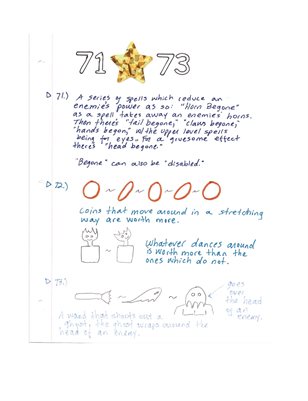 71 73
71.) A series of spells which reduce an
enemies' power as so: "Horn Begone"
as a spell takes away an enemies' horns.
Then there's "tail begone," "claws begone,"
"hands begon," w/ the upper level spells
being for eyes. For a gruesome effect
there's "head begone."
"Begone" can also be "disabled."
72.)
Coins that move around in a stretching
way are worth more.
Whatever dances around
is worth more than the
ones which do not.
73.)
goes
over
the head
of an
enemy.
A wand that shoots out a
ghost, the ghost wraps around the
head of an enemy.